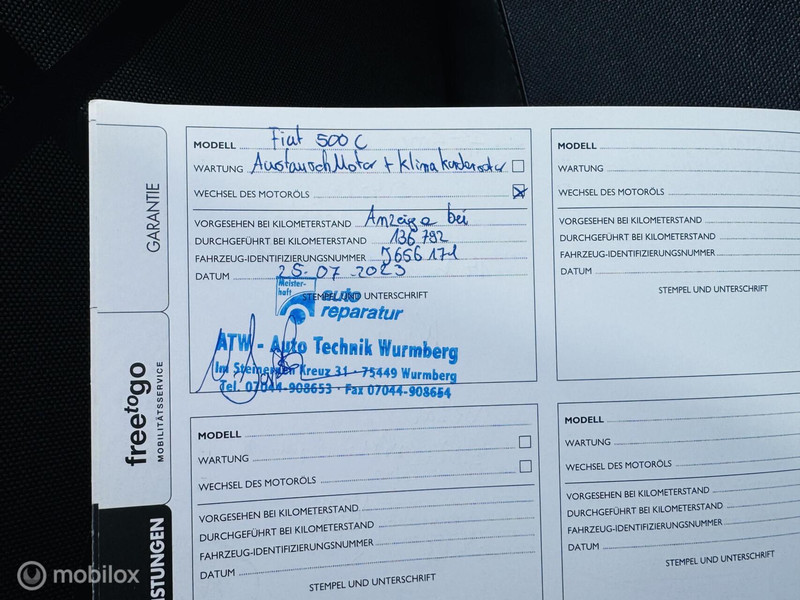 GARANTIE
free to go
MOBILITÄTSSERVICE
MODELL Fiat 500 C
WARTUNG Austausch Motor + Klima Kondensator
WECHSEL DES MOTORÖLS
VORGESEHEN BEI KILOMETERSTAND Anzeige bei
DURCHGEFÜHRT BEI KILOMETERSTAND 136 792
FAHRZEUG-IDENTIFIZIERUNGSNUMMER J656171
DATUM 25.07.2023
STEMPEL UND UNTERSCHRIFT
Meister-
haft
auto
reparatur
ATW - Auto Technik Wurmberg
Im Steinernen Kreuz 31 · 75449 Wurmberg
Tel. 07044-908653 · Fax 07044-908654
MODELL
WARTUNG
WECHSEL DES MOTORÖLS
VORGESEHEN BEI KILOMETERSTAND
DURCHGEFÜHRT BEI KILOMETERSTAND
FAHRZEUG-IDENTIFIZIERUNGSNUMMER
DATUM
STEMPEL UND UNTERSCHRIFT
MODELL
WARTUNG
WECHSEL DES MOTORÖLS
VORGESEHEN BEI KILOMETERSTAND
DURCHGEFÜHRT BEI KILOMETERSTAND
FAHRZEUG-IDENTIFIZIERUNGSNUMMER
DATUM
STEMPEL UND UNTERSCHRIFT
MODELL
WARTUNG
WECHSEL DES MOTORÖLS
VORGESEHEN BEI KILOMETERSTAND
DURCHGEFÜHRT BEI KILOMETERSTAND
FAHRZEUG-IDENTIFIZIERUNGSNUMMER
DATUM
STEMPEL UND UNTERSCHRIFT
mobilox